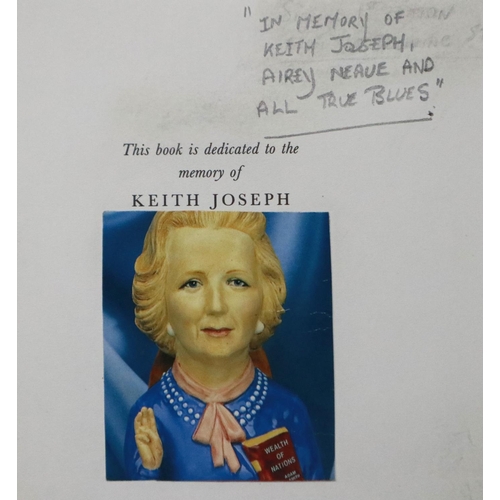 "IN MEMORY OF
KEITH JOSEPH,
AIREY NEAVE AND
ALL TRUE BLUES"
This book is dedicated to the
memory of
KEITH JOSEPH
WEALTH
OF
NATIONS
ADAM